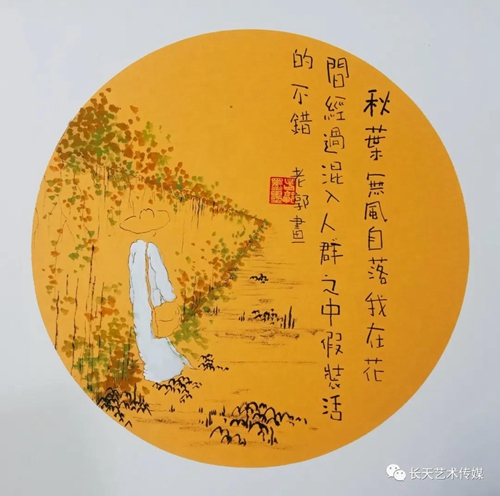 秋葉無風自落我在花
間經過混入人群之中假裝活
的不錯
老郭畫
长天艺术传媒